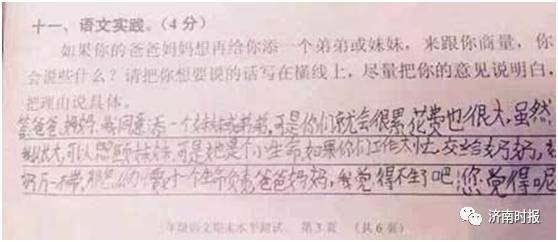 十一、语文实践。(4分)
如果你的爸爸妈妈想再给你添一个弟弟或妹妹，来跟你商量，你
会说些什么？请把你想要说的话写在横线上，尽量把你的意见说明白，
把理由说具体。
答爸爸、妈妈,我同意添一个妹妹或弟弟,可是你们就会很累,花费也很大,虽然
我长大,可以照顾妹妹,可是她是个小生命,如果你们工作太忙,交给奶奶,
奶万一不带,那你们要对一个生命负责,爸爸妈妈,我觉得不生了吧,您觉得呢
年级语文期末水平测试 第3页 (共6页)
济南时报